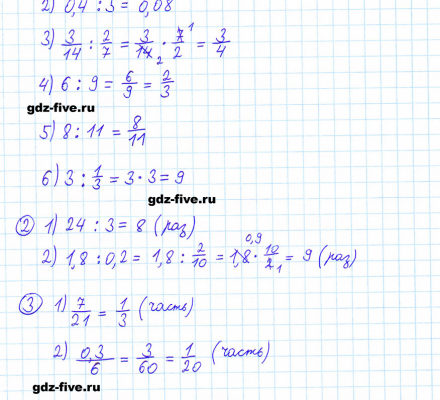 2) 0,4 : 5 = 0,08
3) 3/14 : 2/7 = 3/14 2 · 7 1/2 = 3/4
4) 6 : 9 = 6/9 = 2/3
gdz-five.ru
5) 8 : 11 = 8/11
6) 3 : 1/3 = 3 · 3 = 9
gdz-five.ru
2 1) 24 : 3 = 8 (раз)
2) 1,8 : 0,2 = 1,8 : 2/10 = 1,8 0,9 · 10/2 1 = 9 (раз)
3 1) 7/21 = 1/3 (часть)
2) 0,3/6 = 3/60 = 1/20 (часть)
gdz-five.ru